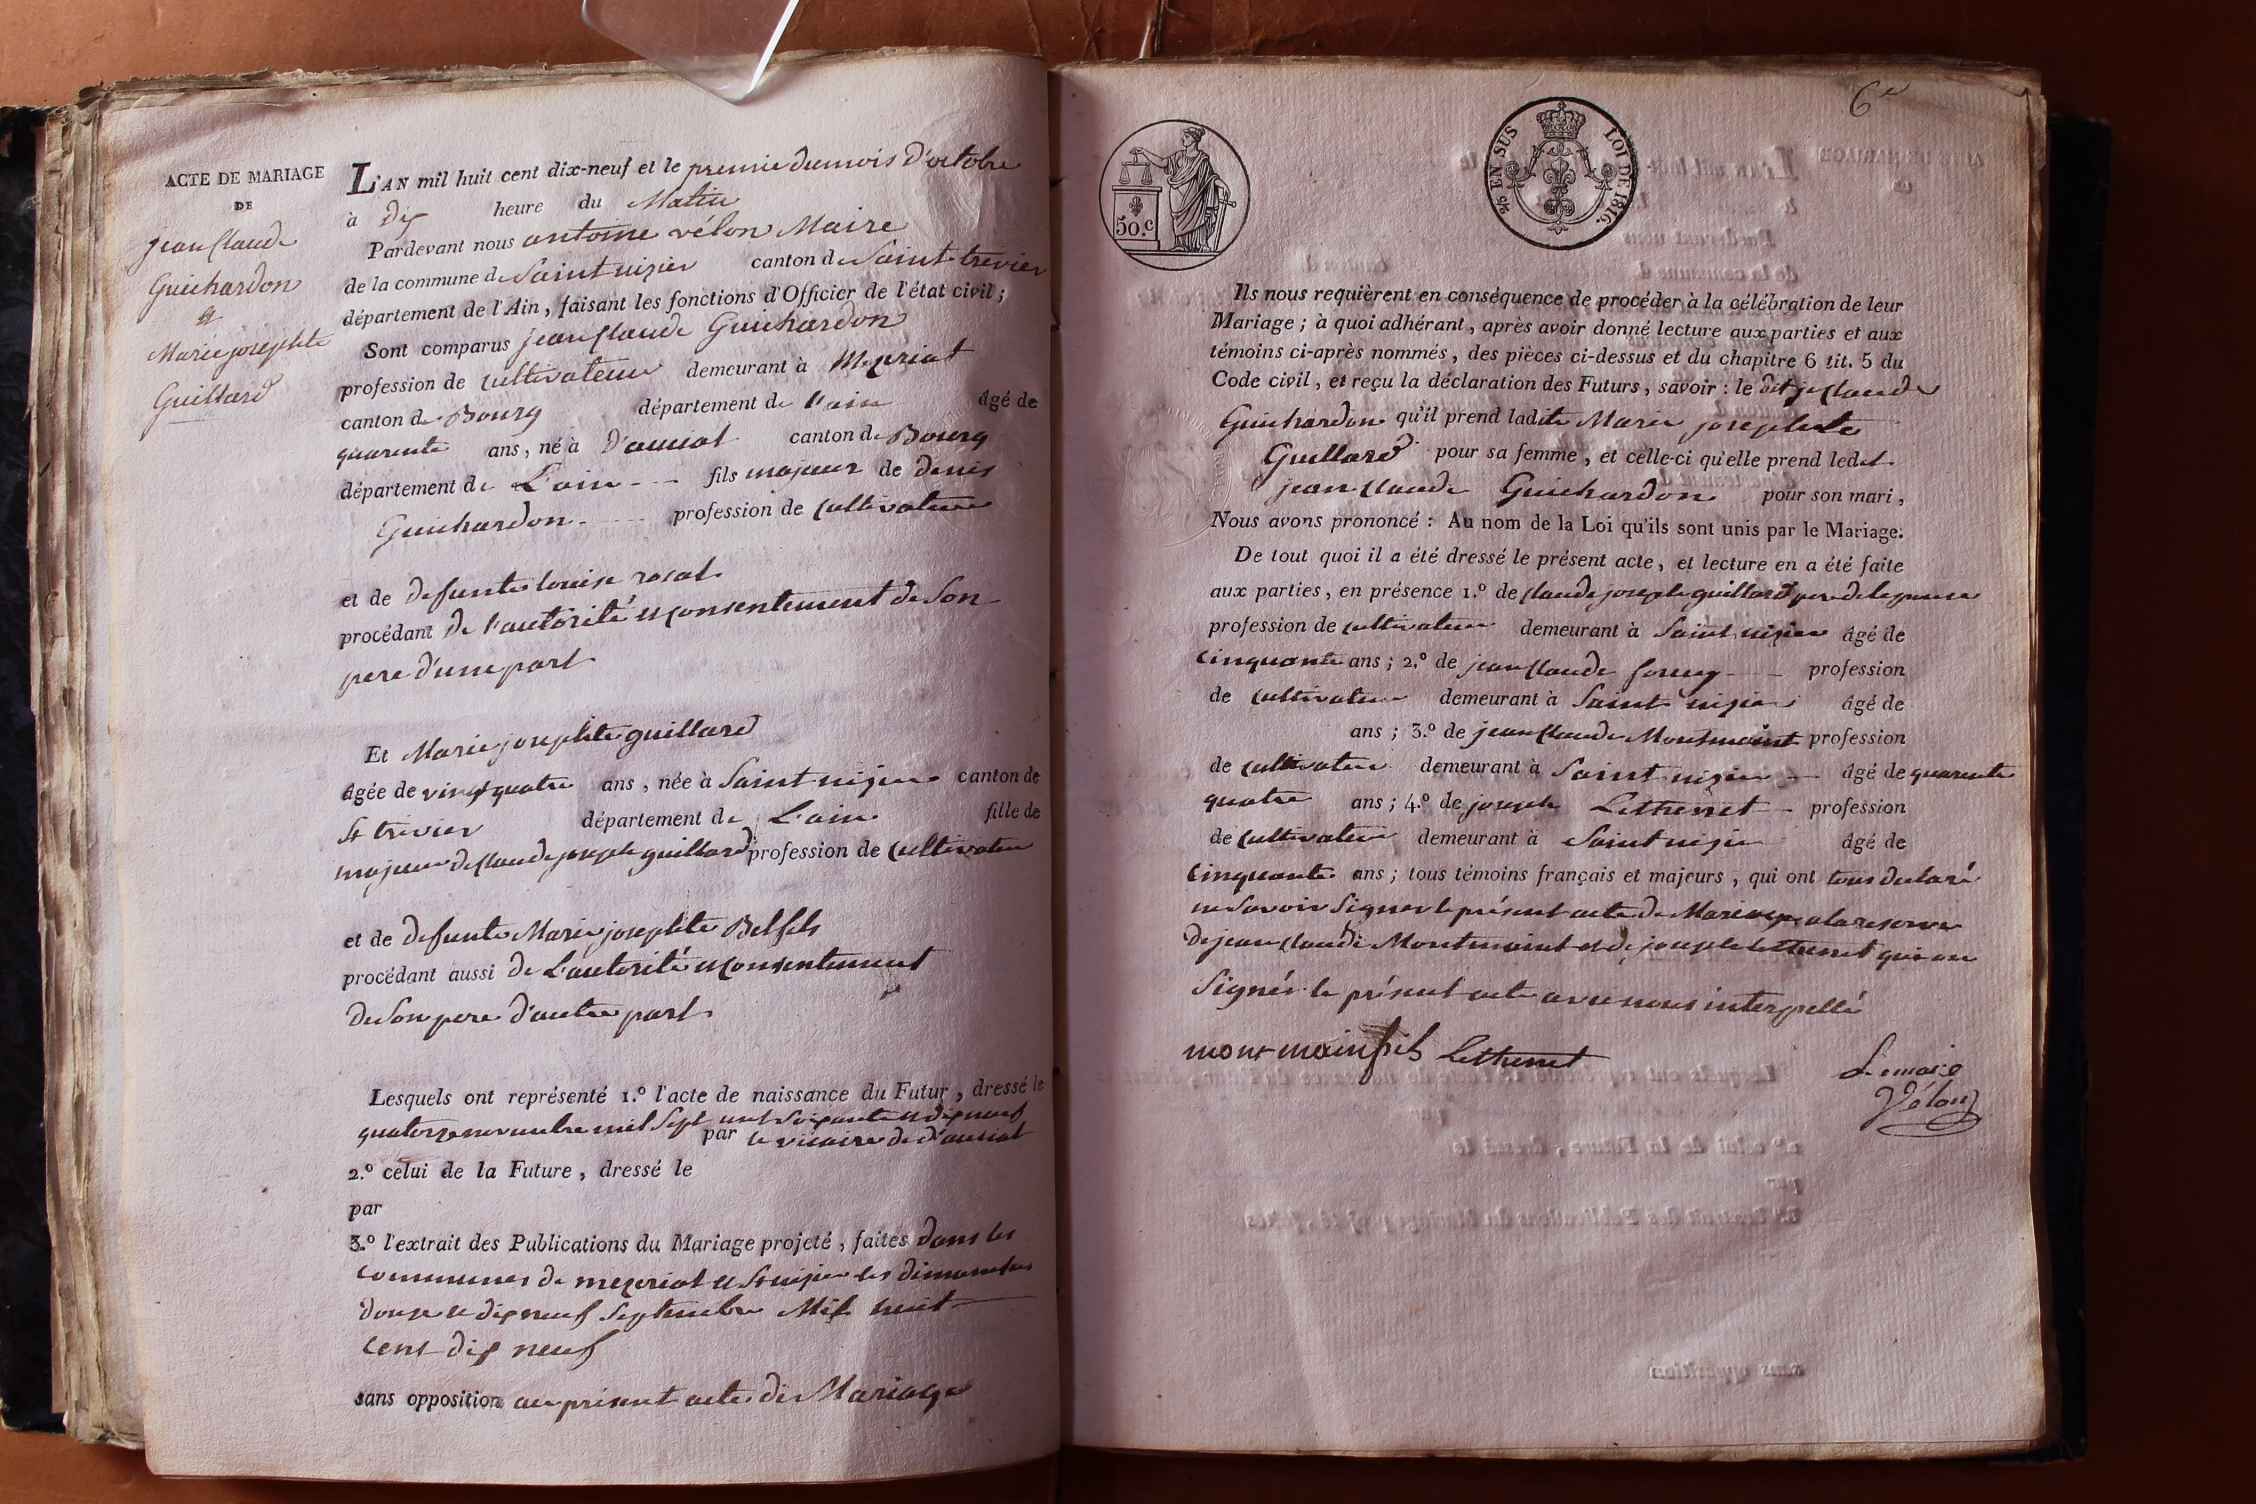 ACTE DE MARIAGE
DE
jean Claude
Guichardon
et
Marie josephte
Guillard
L'AN mil huit cent dix-neuf et le premie du mois d'octobre
à dix heure du Matin
Pardevant nous antoine vélon Maire
de la commune de Saint nizier canton de Saint trevier
département de l'Ain, faisant les fonctions d'Officier de l'état civil;
Sont comparus jean Claude Guichardon
profession de cultivateur demeurant à Mezeriat
canton de Bourg département de l'ain âgé de
quarente ans, né à D'auciat canton de Bourg
département de L'ain fils majeur de denis
Guichardon profession de cultivateur
et de defunte louise rosat
procédant de l'autorité et consentement de Son
pere d'une part
Et Marie josephte guillard
âgée de vingt quatre ans, née à Saint nizier canton de
St trevier département de L'ain fille de
majeure de Claude joseph guillard profession de cultivateur
et de defunte Marie josephte Belfils
procédant aussi de L'autorité et consentement
de Son pere d'autre part
Lesquels ont représenté 1.º l'acte de naissance du Futur, dressé le
quatorze novembre mil Sept cent Soixante et dix neuf
par le vicaire de d'auciat
2.º celui de la Future, dressé le
par
3.º l'extrait des Publications du Mariage projeté, faites dans les
communes de mezeriat et St nizier les dimanches
douze et dix neuf Septembre Mil huit
cent dix neuf
sans opposition au présent acte de Mariage
6e
50.c
2/5 EN SUS LOI DE 1816.
Ils nous requièrent en conséquence de procéder à la célébration de leur
Mariage; à quoi adhérant, après avoir donné lecture aux parties et aux
témoins ci-après nommés, des pièces ci-dessus et du chapitre 6 tit. 5 du
Code civil, et reçu la déclaration des Futurs, savoir: le dit jn Claude
Guichardon qu'il prend ladite Marie josephte
Guillard pour sa femme, et celle-ci qu'elle prend ledit
jean Claude Guichardon pour son mari,
Nous avons prononcé: Au nom de la Loi qu'ils sont unis par le Mariage.
De tout quoi il a été dressé le présent acte, et lecture en a été faite
aux parties, en présence 1.º de Claude joseph guillard pere de lepouse
profession de cultivateur demeurant à Saint nizier âgé de
Cinquante ans; 2.º de jean Claude profession
de cultivateur demeurant à Saint nizier âgé de
ans; 3.º de jean Claude Montmoint profession
de cultivateur demeurant à Saint nizier âgé de quarente
quatre ans; 4.º de joseph Lethenet profession
de cultivateur demeurant à Saint nizier âgé de
Cinquante ans; tous témoins français et majeurs, qui ont tous declaré
ne Savoir Signer le présent acte de Mariage a la reserve
de jean Claude Montmoint et de joseph Lethenet qui on
Signés le présent acte avec nous interpellé
mont moin fils Lethenet
Le maire
Vélon